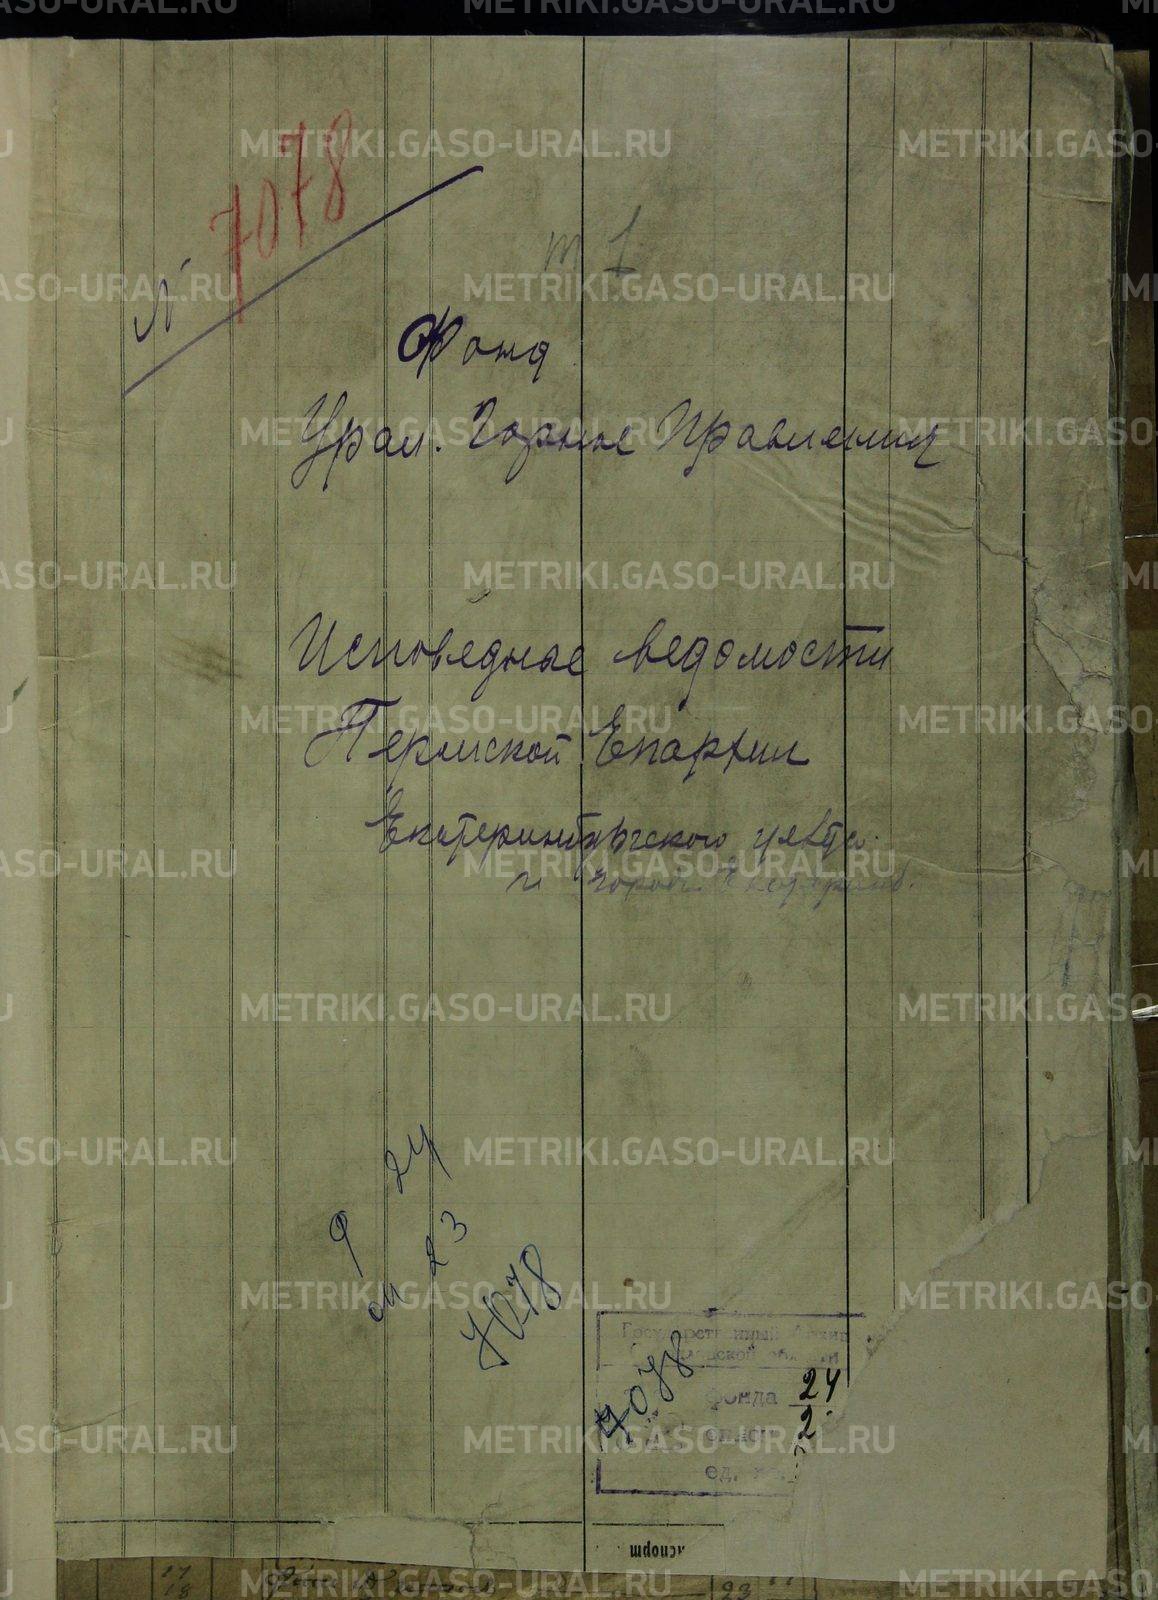 № 7078
т 1
Фонд
Урал. Горное Правления
Исповедные ведомости
Пермской Епархии
Екатеринбургского уезда
и город. Екатеринб.
ф 24
оп 23
7078
Государственный Архив
области
7078
фонда 24
опись 2
ед.
METRIKI.GASO-URAL.RU